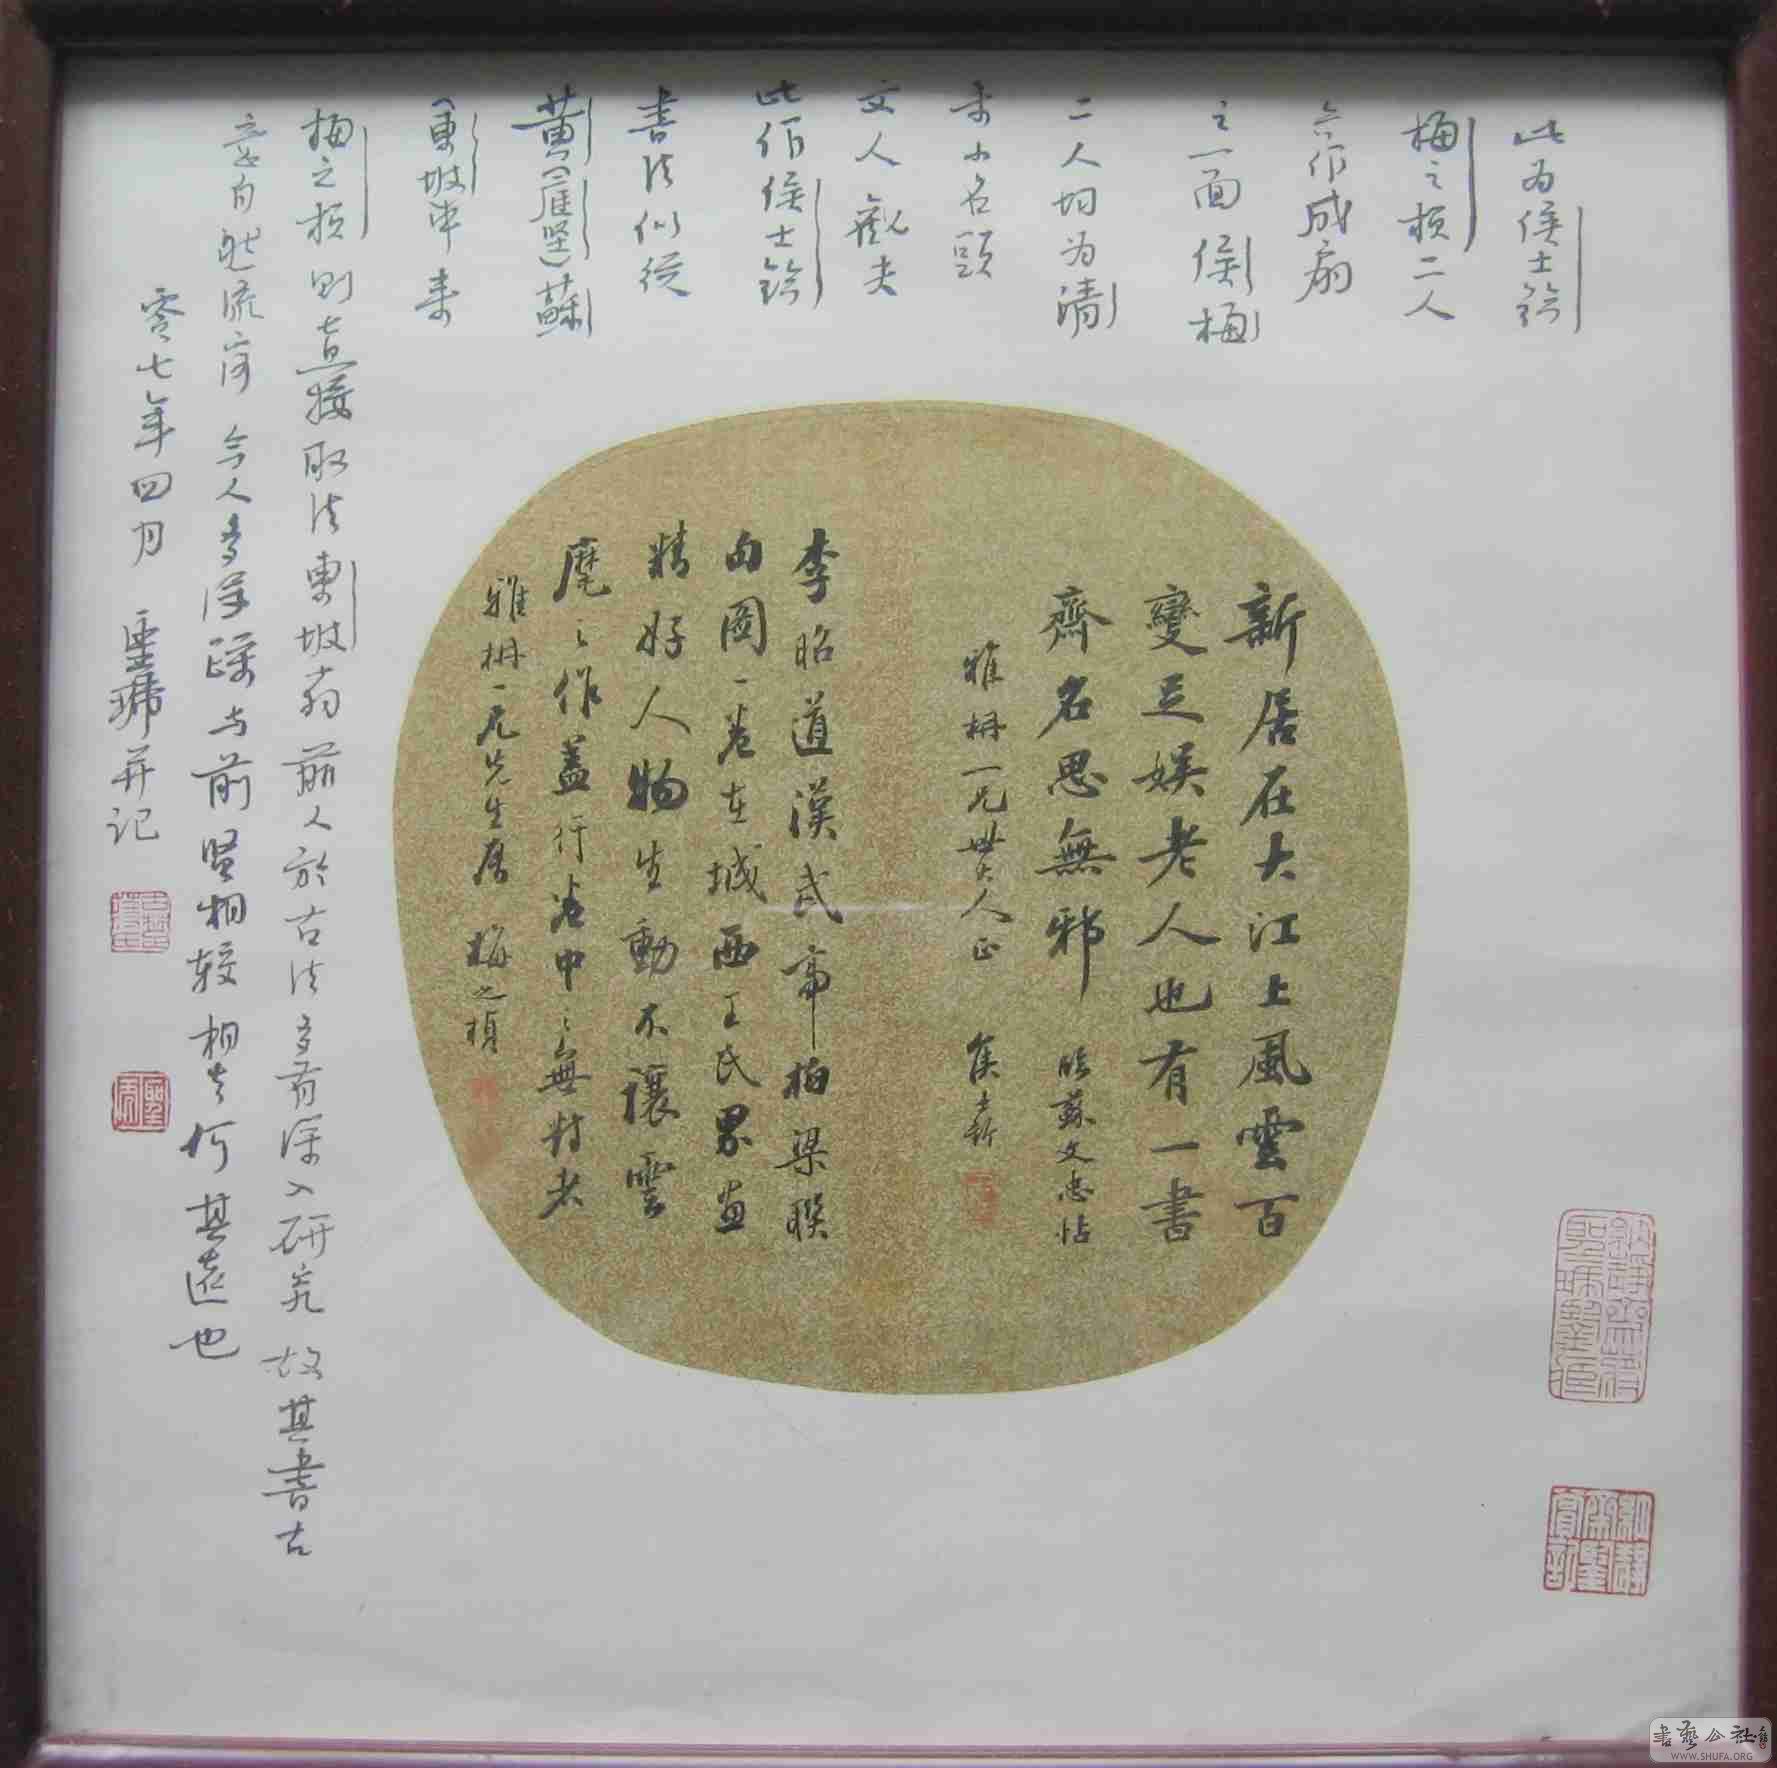 此为侯士
梅之桢二人
合作成扇
之一面侯梅
二人均为清
季小名头
文人观夫
此作侯士
书法似从
黄（庭坚）蘇
（東坡）中来
梅之桢则直接取法東坡翁前人於古法多有深入研究故其書古
意自然流宕今人多浮躁与前贤相较相去何其遠也
零七年四月 聖瑋并记
新居在大江上風雲百
變足娛老人也有一書
齋名思無邪 臨蘇文忠帖
雅栅一兄世大人正 侯士
李昭道漢武帝柏梁
圖一卷在城西王氏界畫
精好人物生動不讓雲
麾之作蓋行卷中之無對者
雅栅一兄先生屬 梅之楨
書藝公社
WWW.SHUFA.ORG